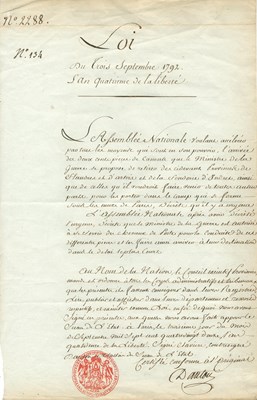 N.º 2288.
N.º 134
Loi
Du trois Septembre 1792.
L'An Quatrieme de la liberté
L'Assemblée Nationale voulant accélérer
par tous les moyens que sont en son pouvoir, l'arrivée
des deux cents pièces de canon que le Ministre de la
Guerre se propose de retirer des
Flandres et d'Artois et de la
que de celles qu'il voudroit faire venir de toutes autres
places pour les porter dans le camp qui se forme
sous les murs de Paris, Décrète qu'il y a urgence
L'assemblée Nationale après avoir décrété
l'urgence, Décrète que le ministre de la Guerre est autorisé
à se servir des chevaux de Poste pour la conduite de ces
différentes pièces et les faire ainsi arriver à leur destination
dans le délai le plus court
Au Nom de la Nation, le Conseil exécutif provisoire
mande et ordonne à tous les Corps administratifs et tribunaux,
que les présentes ils fassent consigner dans leurs Registres
Lire, publier et afficher dans leurs départements et ressorts
respectifs, et exécuter comme Loi, en foi de quoi nous avons
Signé ces présentes aux quelles nous avons fait apposer le
Sceau de l'Etat, à Paris, le troisieme jour du mois de
Septembre mil Sept cent quatre vingt douze, l'an
quatrieme de la Liberté
Sceau de l'Etat
Certifié conforme à l'original
Danton